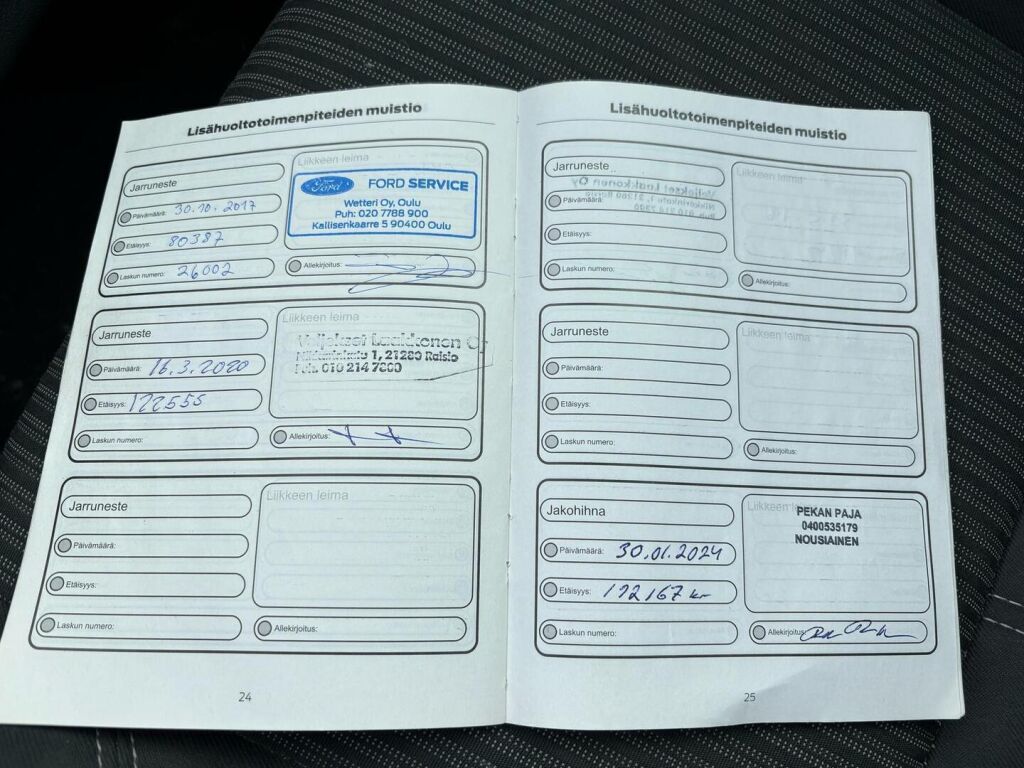 Lisähuoltotoimenpiteiden muistio
Jarruneste
Päivämäärä: 30.10.2017
Etäisyys: 80387
Laskun numero: 26002
Liikkeen leima
Ford
FORD SERVICE
Wetteri Oy, Oulu
Puh: 020 7788 900
Kallisenkaarre 5 90400 Oulu
Allekirjoitus:
Jarruneste
Päivämäärä: 16.3.2020
Etäisyys: 122555
Laskun numero:
Liikkeen leima
Veljekset Laakkonen Oy
1, 21280 Raisio
Puh. 010 214 7800
Allekirjoitus:
Jarruneste
Päivämäärä:
Etäisyys:
Laskun numero:
Liikkeen leima
Allekirjoitus:
24
Lisähuoltotoimenpiteiden muistio
Jarruneste
Päivämäärä:
Etäisyys:
Laskun numero:
Liikkeen leima
Allekirjoitus:
Jarruneste
Päivämäärä:
Etäisyys:
Laskun numero:
Liikkeen leima
Allekirjoitus:
Jakohihna
Päivämäärä: 30.01.2024
Etäisyys: 192167 km
Laskun numero:
Liikkeen
PEKAN PAJA
0400535179
NOUSIAINEN
Allekirjoitus:
25